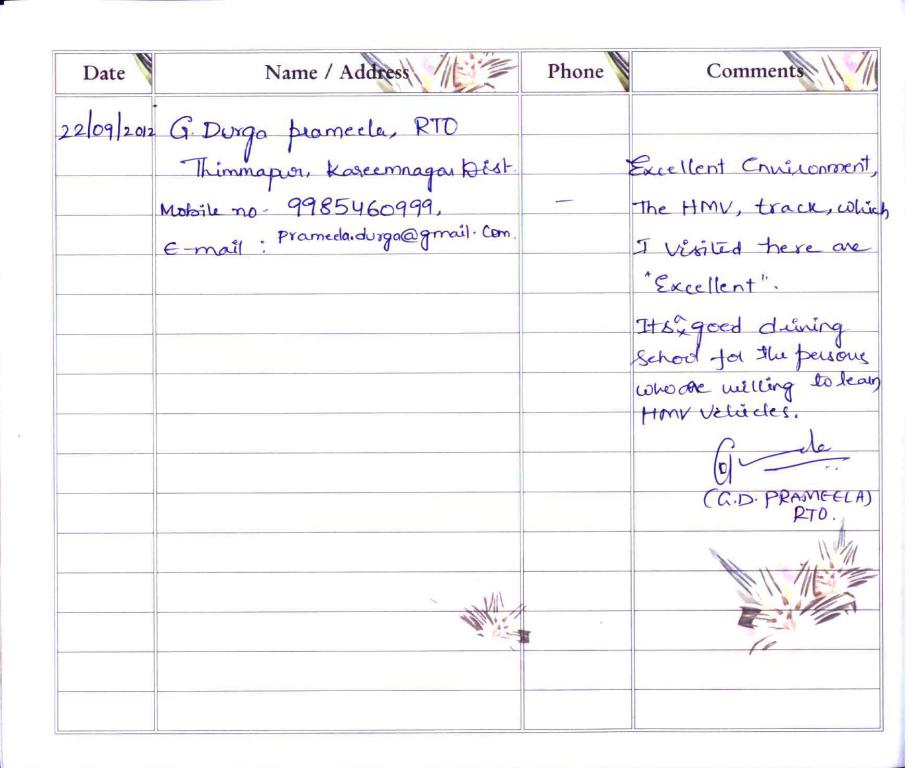 Date Name / Address Phone Comments
22/09/2012
G. Durga prameela, RTO
Thimmapur, Kareemnagar Dist.
Mobile no - 9985460999,
E-mail : prameela.durga@gmail.com.
–
Excellent Environment,
The HMV, track, which
I visited here are
"Excellent".
Its a good driving
School for the persons
who are willing to learn
HMV Vehicles.
(G.D. PRAMEELA)
RTO.